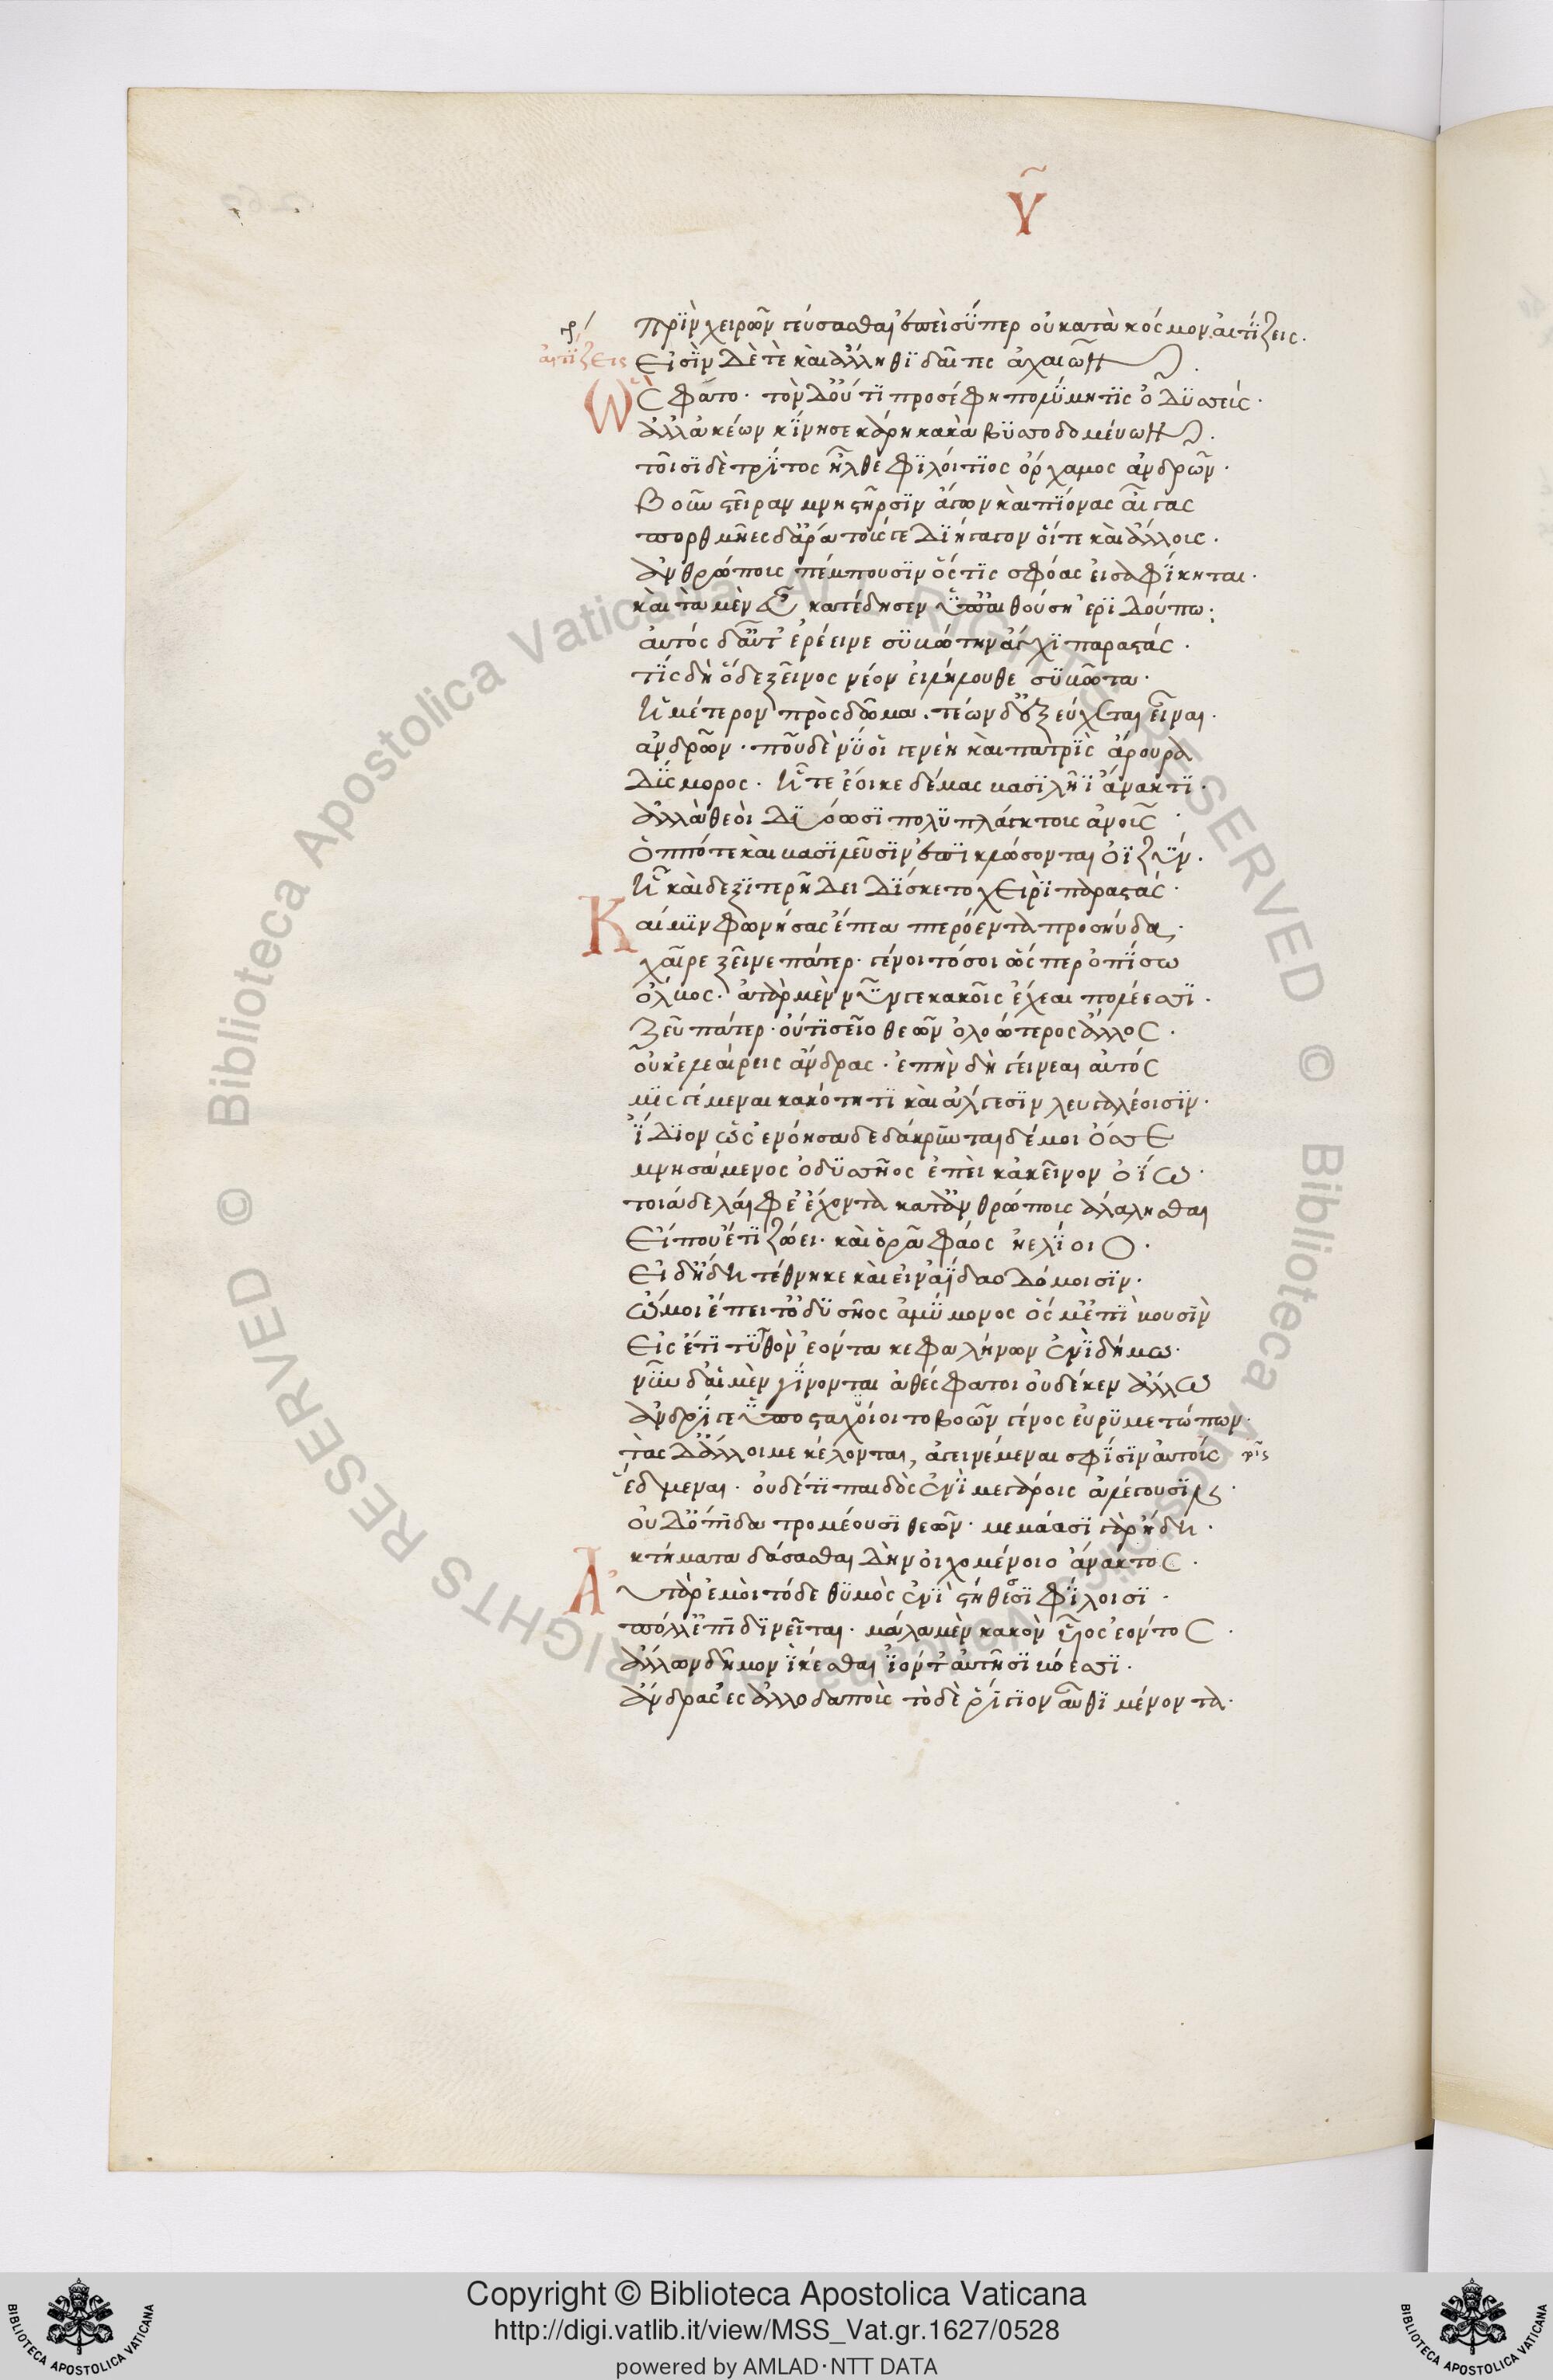 Υ
πρὶν χειρῶν γεύσασθαι ἐπεὶ σύ περ οὐ κατὰ κόσμον αἰτίζεις.
γρ
αἰτίζεις
εἰσὶν δέ τε καὶ ἄλληθι δαῖτες ἀχαιῶν.
Ὣς φάτο. τὸν δ' οὔτι προσέφη πολύμητις ὀδυσσεύς.
ἀλλ' ἀκέων κίνησε κάρη κακὰ βυσσοδομεύων.
τοῖσι δὲ τρίτος ἦλθε φιλοίτιος ὄρχαμος ἀνδρῶν.
βοῦν στεῖραν μνηστῆρσιν ἄγων καὶ πίονας αἶγας
πορθμῆες δ' ἄρα τούς γε διήγαγον οἵτε καὶ ἄλλους.
ἀνθρώπους πέμπουσιν ὅς τις σφέας εἰσαφίκηται.
καὶ τὰ μὲν εὖ κατέδησεν ὑπ' αἰθούσῃ ἐριδούπω.
αὐτός δ' αὖτ' ἐρέεινε συβώτην ἄγχι παραστάς.
τίς δὴ ὅδε ξεῖνος νέον εἰλήλουθε συβῶτα.
ἡμέτερον πρὸς δῶμα. τέων δ' ἐξεύχεται εἶναι.
ἀνδρῶν. ποῦ δέ νύ οἱ γενεὴ καὶ πατρὶς ἄρουρα
δύσμορος. ἦ τε ἔοικε δέμας βασιλῆϊ ἄνακτι.
ἀλλὰ θεοὶ δυόωσι πολυπλάγκτους ἀνους.
ὁππότε καὶ βασιλεῦσιν ἐπικλώσονται ὀϊζύν.
Ἦ καὶ δεξιτερῇ δειδίσκετο χειρὶ παραστάς.
Καί μιν φωνήσας ἔπεα πτερόεντα προσηύδα.
χαῖρε ξεῖνε πάτερ. γένοιτό σοι ὥς περ ὀπίσω
ὄλβος. ἀτὰρ μὲν νῦν γε κακοῖς ἔχεαι πολέεσσι.
Ζεῦ πάτερ. οὔτις εῖο θεῶν ὀλοώτερος ἄλλος.
οὐκ ἐλεαίρεις ἄνδρας. ἐπὴν δὴ γείνεαι αὐτός
μισγέμεναι κακότητι καὶ ἄλγεσιν λευγαλέοισιν.
ἴδιον ὡς ἐνόησα δεδάκρυνται δέ μοι ὄσσε
μνησαμένος ὀδυσσῆος ἐπεὶ κἀκεῖνον ὀΐω.
τοιάδε λαίφε' ἔχοντα κατ' ἀνθρώπους ἀλάλησθαι
Εἴ που ἔτι ζώει. καὶ ὁρᾶ φάος ἠελίοιο.
Εἰ δ' ἤδη τέθνηκε καὶ εἰν ἀΐδαο δόμοισιν.
Ὤμοι ἔπειτ' ὀδυσῆος ἀμύμονος ὅς μ' ἐπὶ βουσὶν
Εἷς ἔτι τυτθὸν ἐόντα κεφαλήνων ἐνὶ δήμω.
νῦν δ' αἱ μὲν γίνονται ἀθέσφατοι οὐδέ κεν ἄλλω
ἀνδρί γε ὑποσταχύοιτο βοῶν γένος εὐρυμετώπων.
τὰς δ' ἄλλοι με κέλονται, ἀγεινέμεναι σφίσιν αὐτοῖς
ἔδμεναι. οὐδέ τι παιδὸς ἐνὶ μεγάροις ἀλέγουσιν.
οὐδ' ὄπιδα τρομέουσι θεῶν. μεμάασι γὰρ ἤδη.
κτήματα δάσασθαι δὴν οἰχομένοιο ἄνακτος.
Αὐτὰρ ἐμοὶ τόδε θυμὸς ἐνὶ στήθεσι φίλοισι.
πόλλ' ἐπιδινεῖται. μάλα μὲν κακὸν υἷος ἐόντος.
ἄλλων δῆμον ἱκέσθαι ἰόντ' αὐτῇσι βόεσσι.
ἄνδρας ἐς ἀλλοδαπούς τὸ δὲ ῥίγιον αὖθι μένοντα.
Copyright © Biblioteca Apostolica Vaticana
http://digi.vatlib.it/view/MSS_Vat.gr.1627/0528
powered by AMLAD·NTT DATA